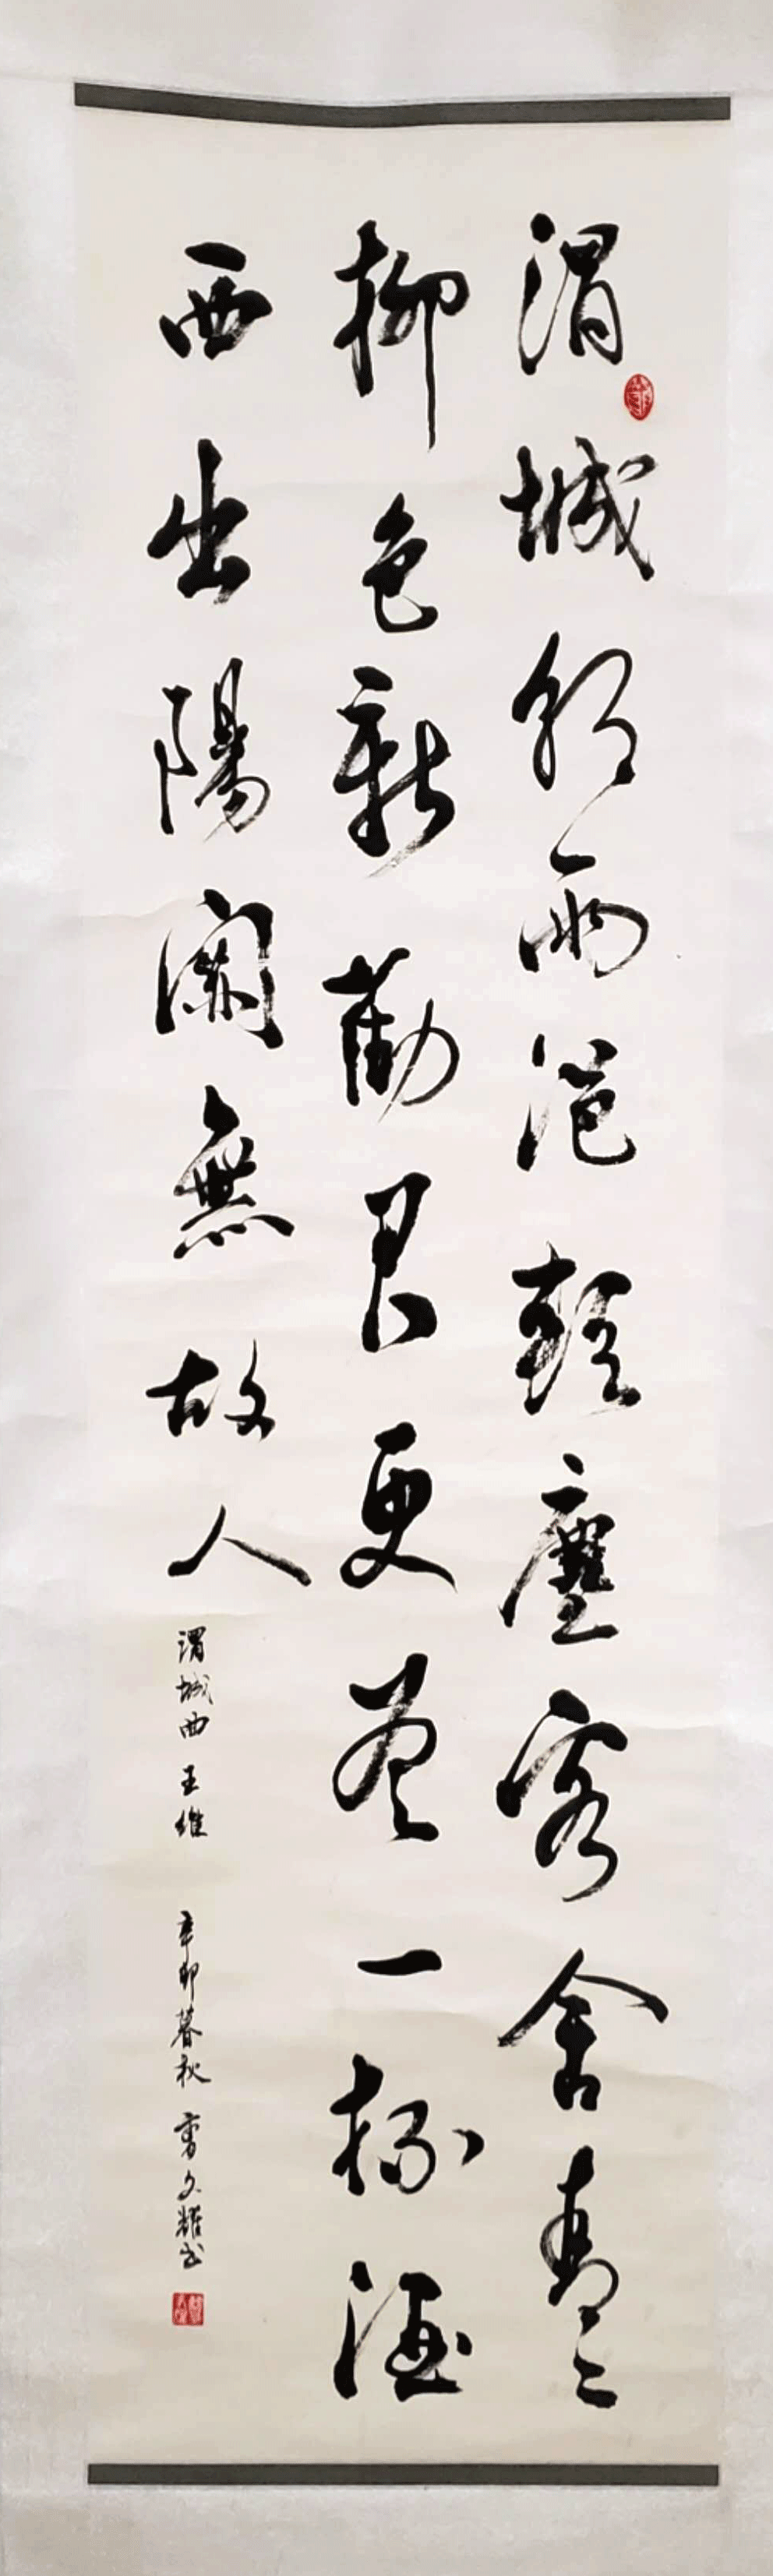 渭城朝雨浥輕塵客舍青々
柳色新勸君更盡一杯酒
西出陽關無故人
渭城曲 王維 辛卯暮秋 曹文耀书